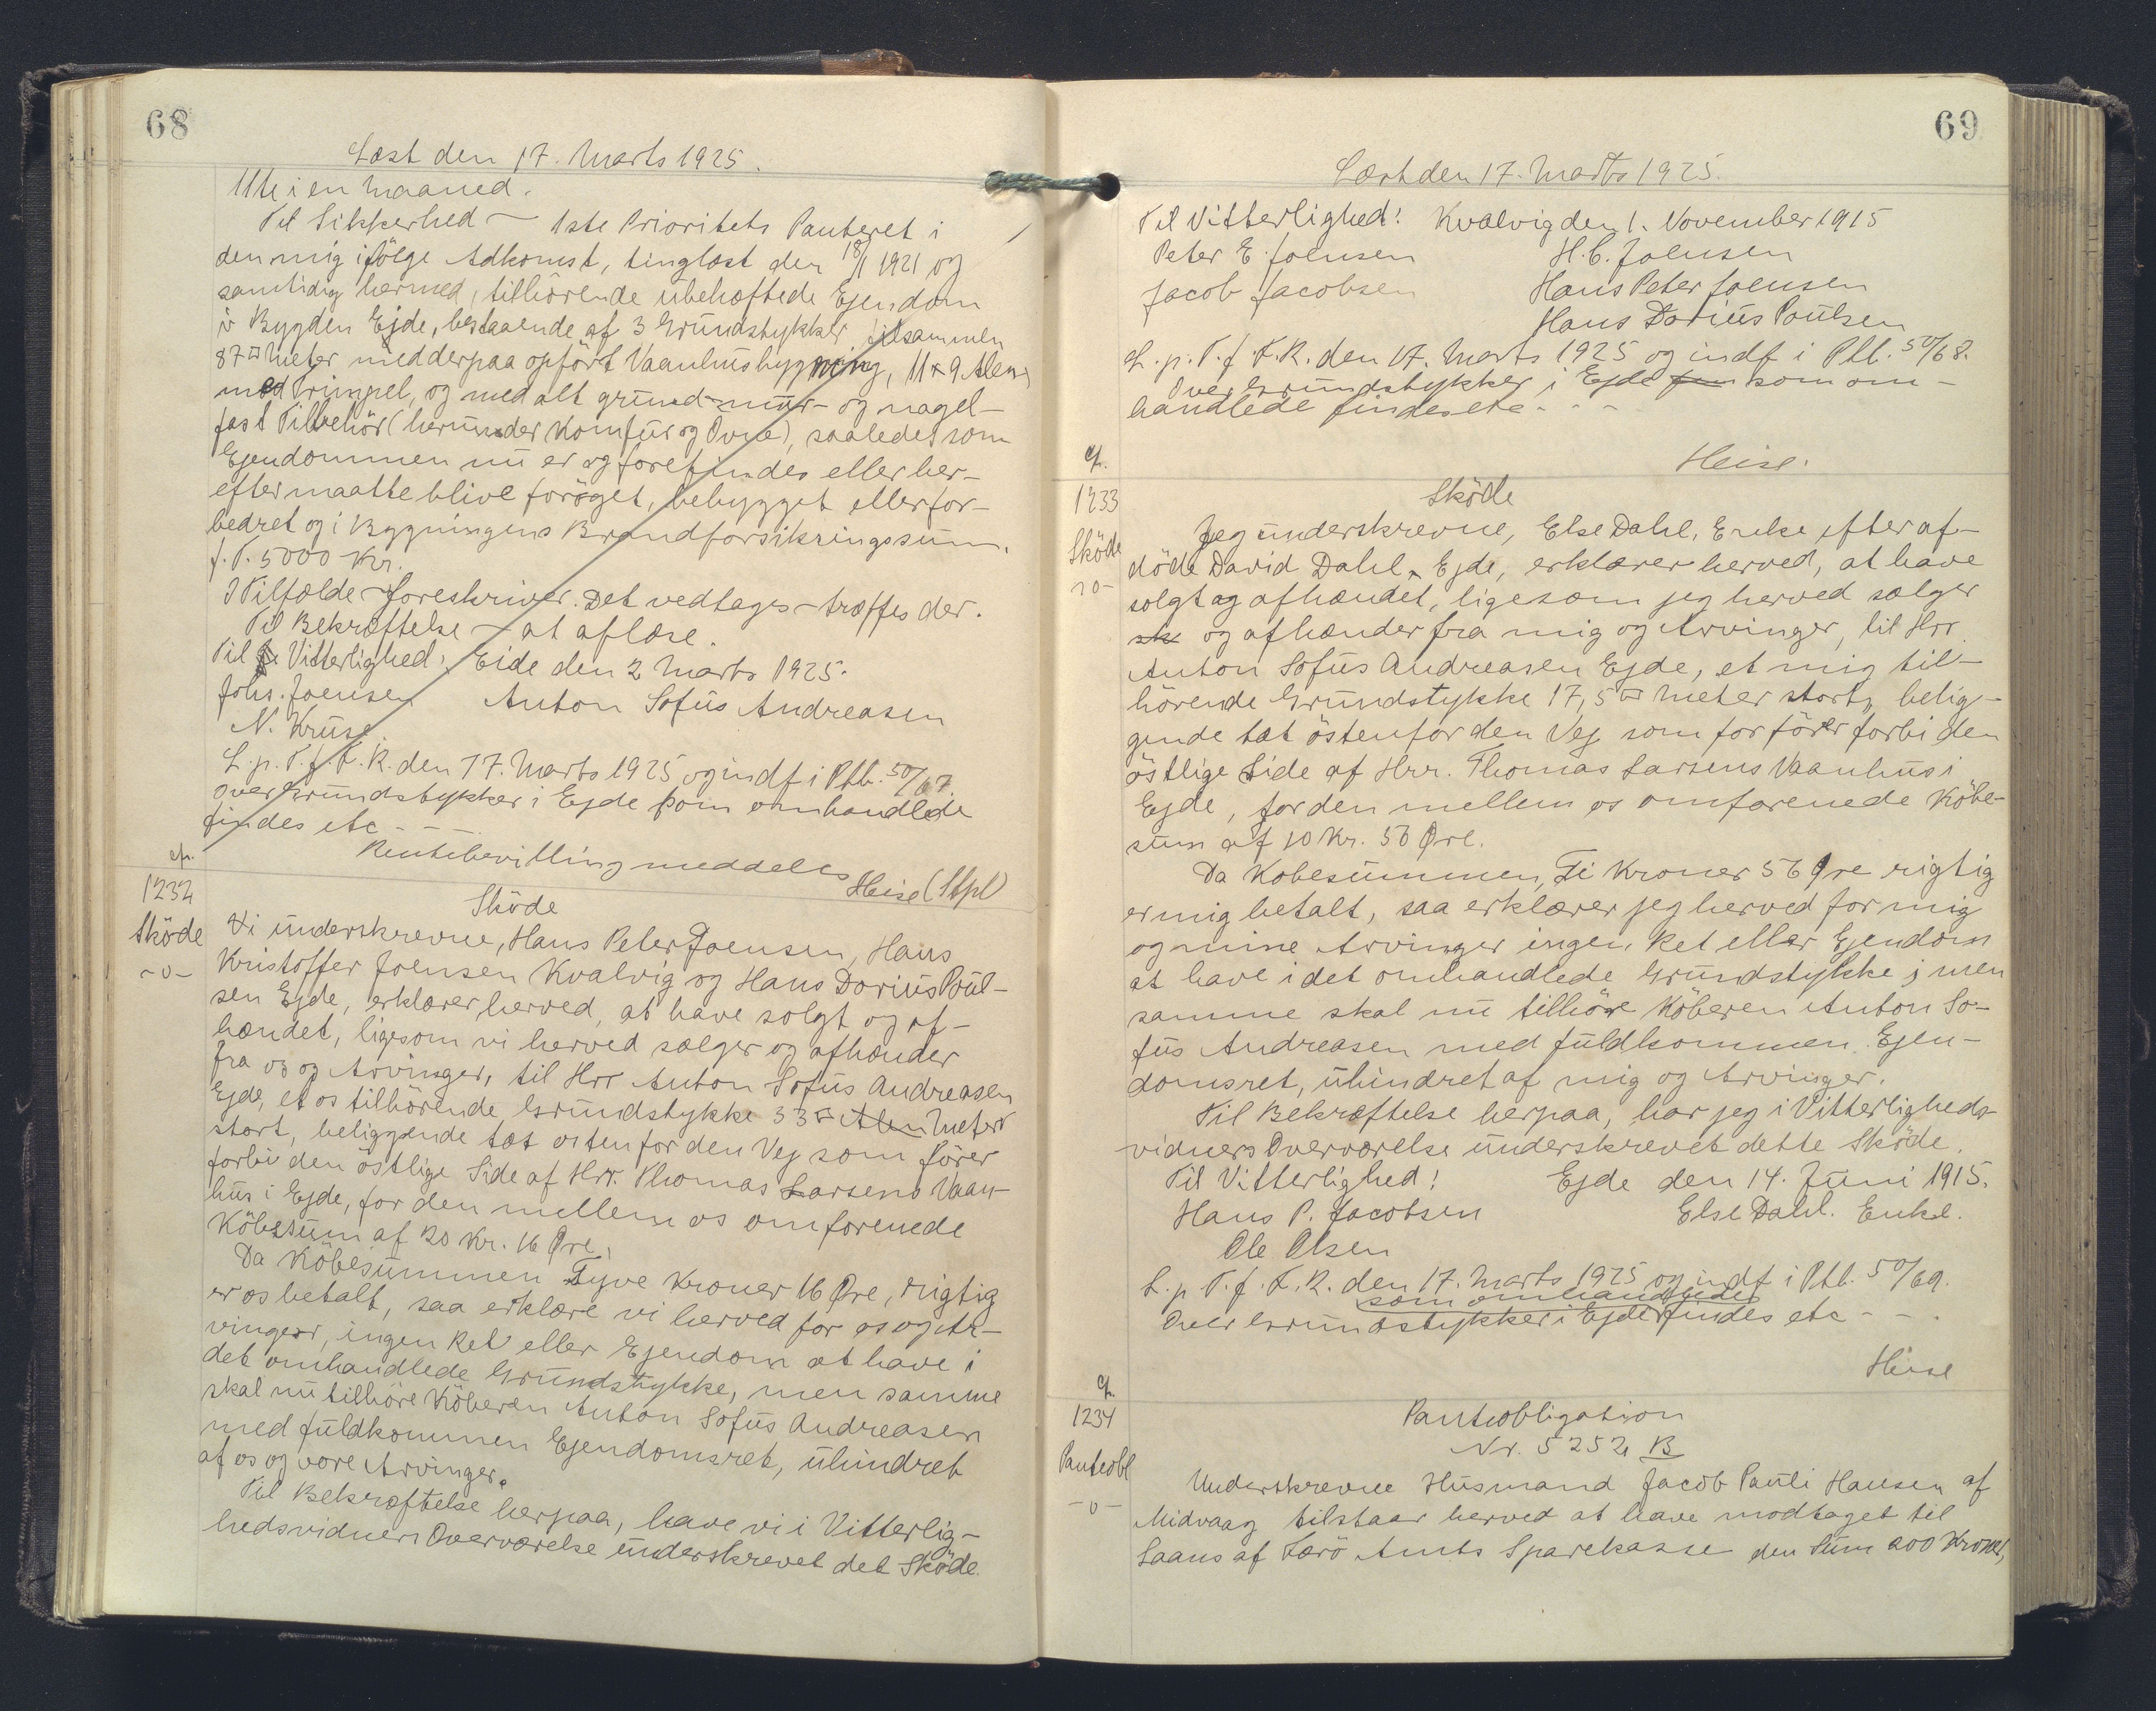 68
Læst den 17. Marts 1925.
Ute i en Maaned.
Til Sikkerhed ~ 1ste Prioritets Panteret i
den mig ifölge Adkomst, tinglæst den 18/1 1921 og
samtidig hermed, tilhörende ubehæftede Ejendom
i Bygden Ejde, bestaaende af 3 Grundstykker tilsammen
87 □ Meter med derpaa opfört Vaanhusbygning, 11 x 9 Alen
med Trimpel, og med alt grund- mur- og nagel-
fast Tilbehör (herunder Komfur og Ovne), saaledes som
Ejendommen nu er og forefindes eller her-
efter maatte blive foröget, bebygget eller for-
bedret og i Bygningens Brandforsikringssum.
f. T. 5000 Kr.
I Tilfælde ~ foreskriver. Det vedtages ~ træffes der.
Til Bekræftelse ~ at aflæse.
Til Vitterlighed: Eide den 2 Marts 1925.
Johs. Joensen Anton Sofus Andreasen
N. Kruse
L. p. T. f F. R. den 17. Marts 1925 og indf i Ptb. 50/67.
over Grundstykker i Ejde som omhandlede
findes etc - - -
Rentebevilling meddeles
Heise (Stpl)
cfr.
1232
Sköde
-o-
Sköde
Vi underskrevne, Hans Peter Joensen, Hans
Kristoffer Joensen Kvalvig og Hans Dorius Poul-
sen Ejde, erklærer herved, at have solgt og af-
hændet, ligesom vi herved sælger og afhænder
fra os og Arvinger, til Hrr Anton Sofus Andreasen
Ejde, et os tilhörende Grundstykke 33 □ Alen Meter
stort, beliggende tæt östen for den Vej som förer
forbi den östlige Side af Hrr. Thomas Larsens Vaan-
hus i Ejde, for den mellem os omforenede
Köbesum af 20 Kr. 16 Øre.
Da Köbesummen Tyve Kroner 16 Øre, rigtig
er os betalt, saa erklære vi herved for os og Ar-
vinger, ingen Ret eller Ejendom at have i
det omhandlede Grundstykke, men samme
skal nu tilhöre Köberen Anton Sofus Andreasen
med fuldkommen Ejendomsret, uhindret
af os og vore Arvinger.
Til Bekræftelse herpaa, have vi i Vitterlig-
hedsvidners Overværelse underskrevet det Sköde.
69
Læst den 17. Marts 1925.
Til Vitterlighed! Kvalvig den 1. November 1915
Peter E. Joensen H. C. Joensen
Jacob Jacobsen Hans Peter Joensen
Hans Dorius Poulsen
L. p. T. f F. R. den 17. Marts 1925 og indf i Ptb. 50/68.
Over Grundstykker i Ejde som om-
handlede findes etc - - -
Heise.
cfr.
1233
Sköde
-o-
Sköde
Jeg underskrevne, Else Dahl, Enke efter af-
döde David Dahl, Ejde, erklærer herved, at have
solgt og afhændet, ligesom jeg herved sælger
sk og afhænder fra mig og Arvinger, til Hrr.
Anton Sofus Andreasen Ejde, et mig til-
hörende Grundstykke 17,5 □ Meter stort, belig-
gende tæt östenfor den Vej som for förer forbi den
östlige Side af Hrr. Thomas Larsens Vaanhus i
Ejde, for den mellem os omforenede Köbe-
sum af 10 Kr. 56 Øre.
Da Kobesummen, Ti Kroner 56 Øre rigtig
er mig betalt, saa erklærer jeg herved for mig
og mine Arvinger ingen Ret eller Ejendom
at have i det omhandlede Grundstykke; men
samme skal nu tilhöre Köberen Anton So-
fus Andreasen med fuldkommen Ejen-
domsret, uhindret af mig og Arvinger.
Til Bekræftelse herpaa, har jeg i Vitterligheds-
vidners Overværelse underskrevet dette Sköde.
Til Vitterlighed! Ejde den 14. Juni 1915.
Hans P. Jacobsen Else Dahl. Enke.
Ole Olsen
L. p T. f. F. R. den 17. Marts 1925 og indf i Ptb. 50/69.
som omhandlede
Over Grundstykker i Ejde findes etc - - .
Heise
cfr.
1234
Panteobl
-o-
Panteobligation
Nr. 5252 B
Underskrevne Husmand Jacob Pauli Hansen af
Midvaag tilstaar herved at have modtaget til
Laans af Færö Amts Sparekasse den Sum 200 Kroner,